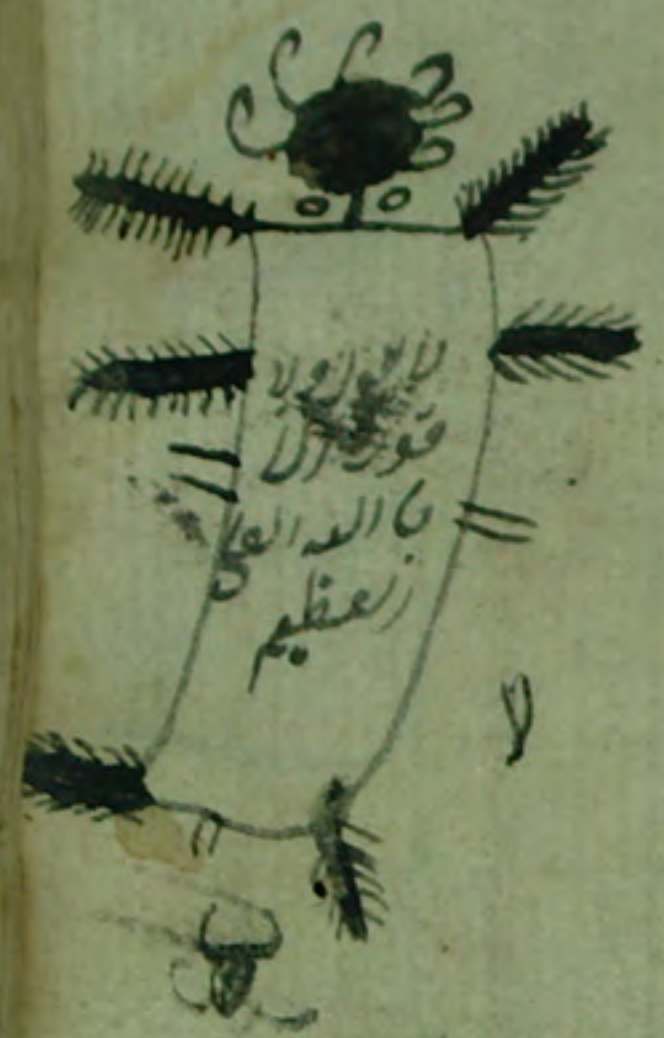 لا حول ولا
قوة الا
با الله العلي
العظيم